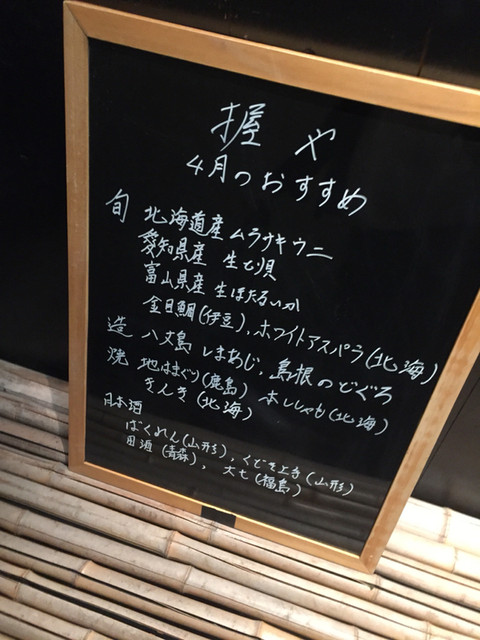 握や
4月のおすすめ
旬 北海道産 ムラサキウニ
愛知県産 生とり貝
富山県産 生ほたるいか
金目鯛(伊豆)、ホワイトアスパラ(北海)
造 八丈島 しまあじ、島根のどぐろ
焼 地はまぐり(鹿島) 本ししゃも(北海)
きんき(北海)
日本酒
ばくれん(山形)、くどき上手(山形)
田酒(青森)、大七(福島)